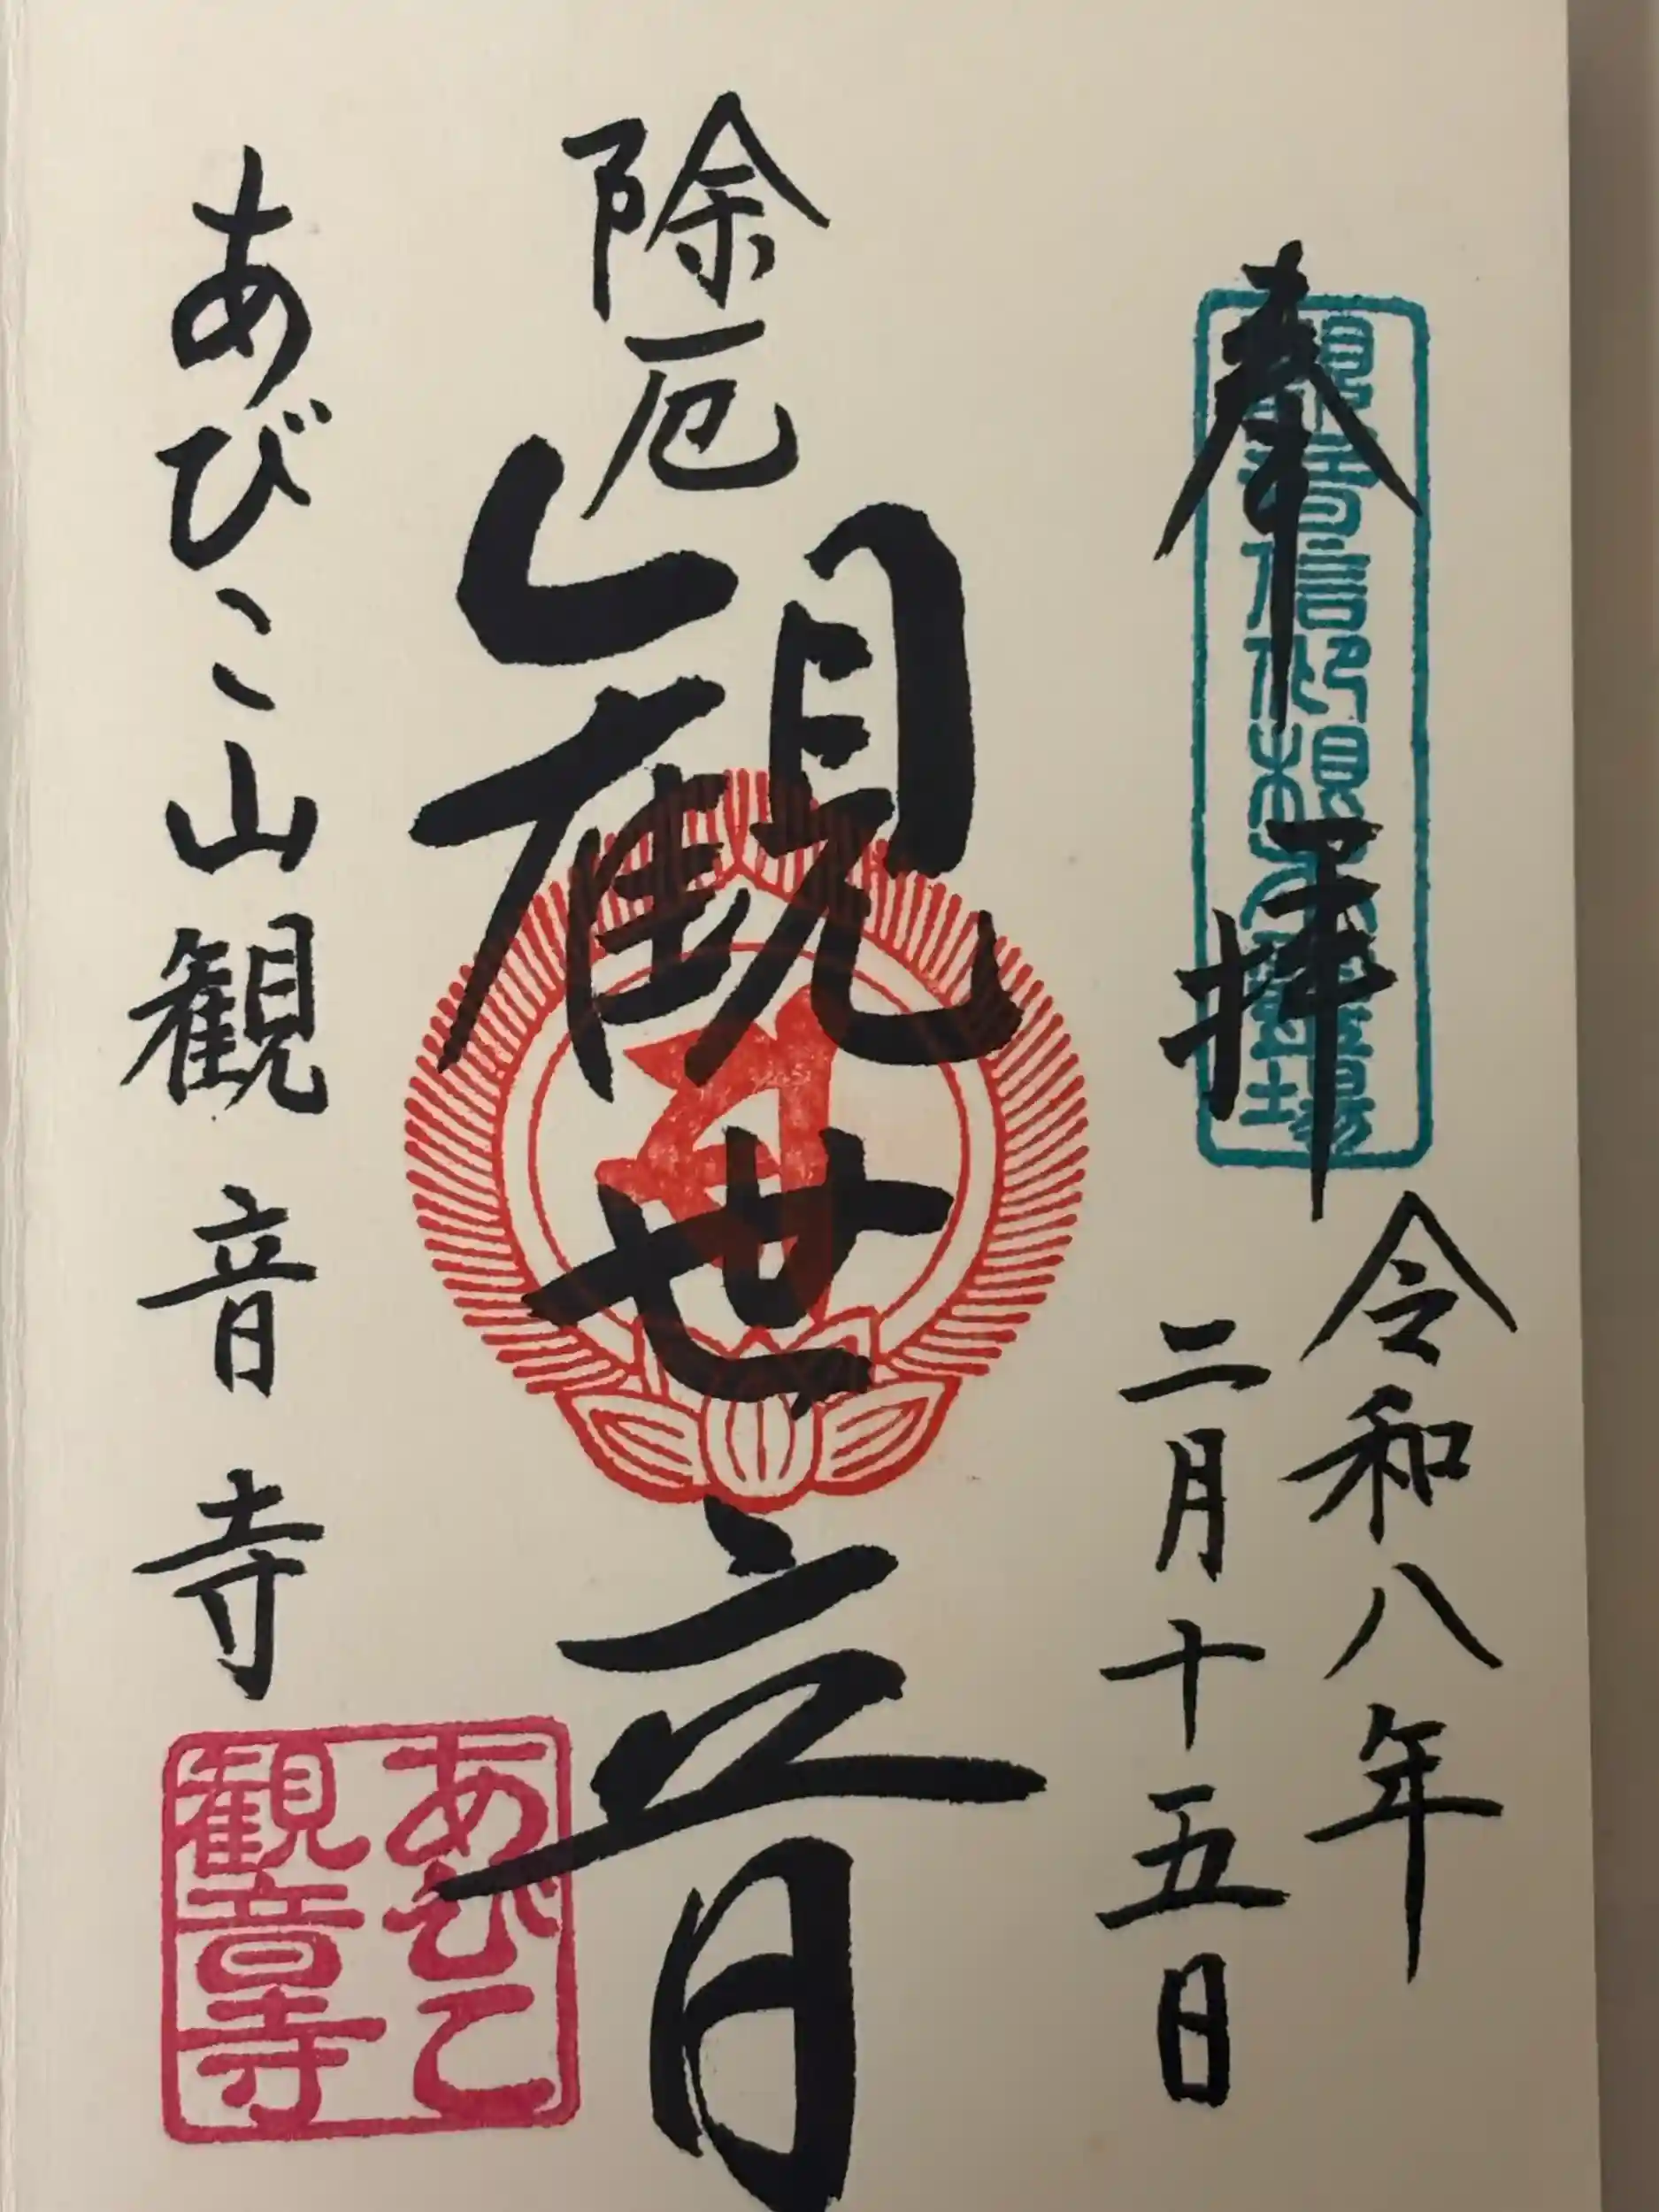 奉拝
観音信仰根本霊場
令和八年
二月十五日
除厄
観世音
あびこ山観音寺
あびこ
観音寺